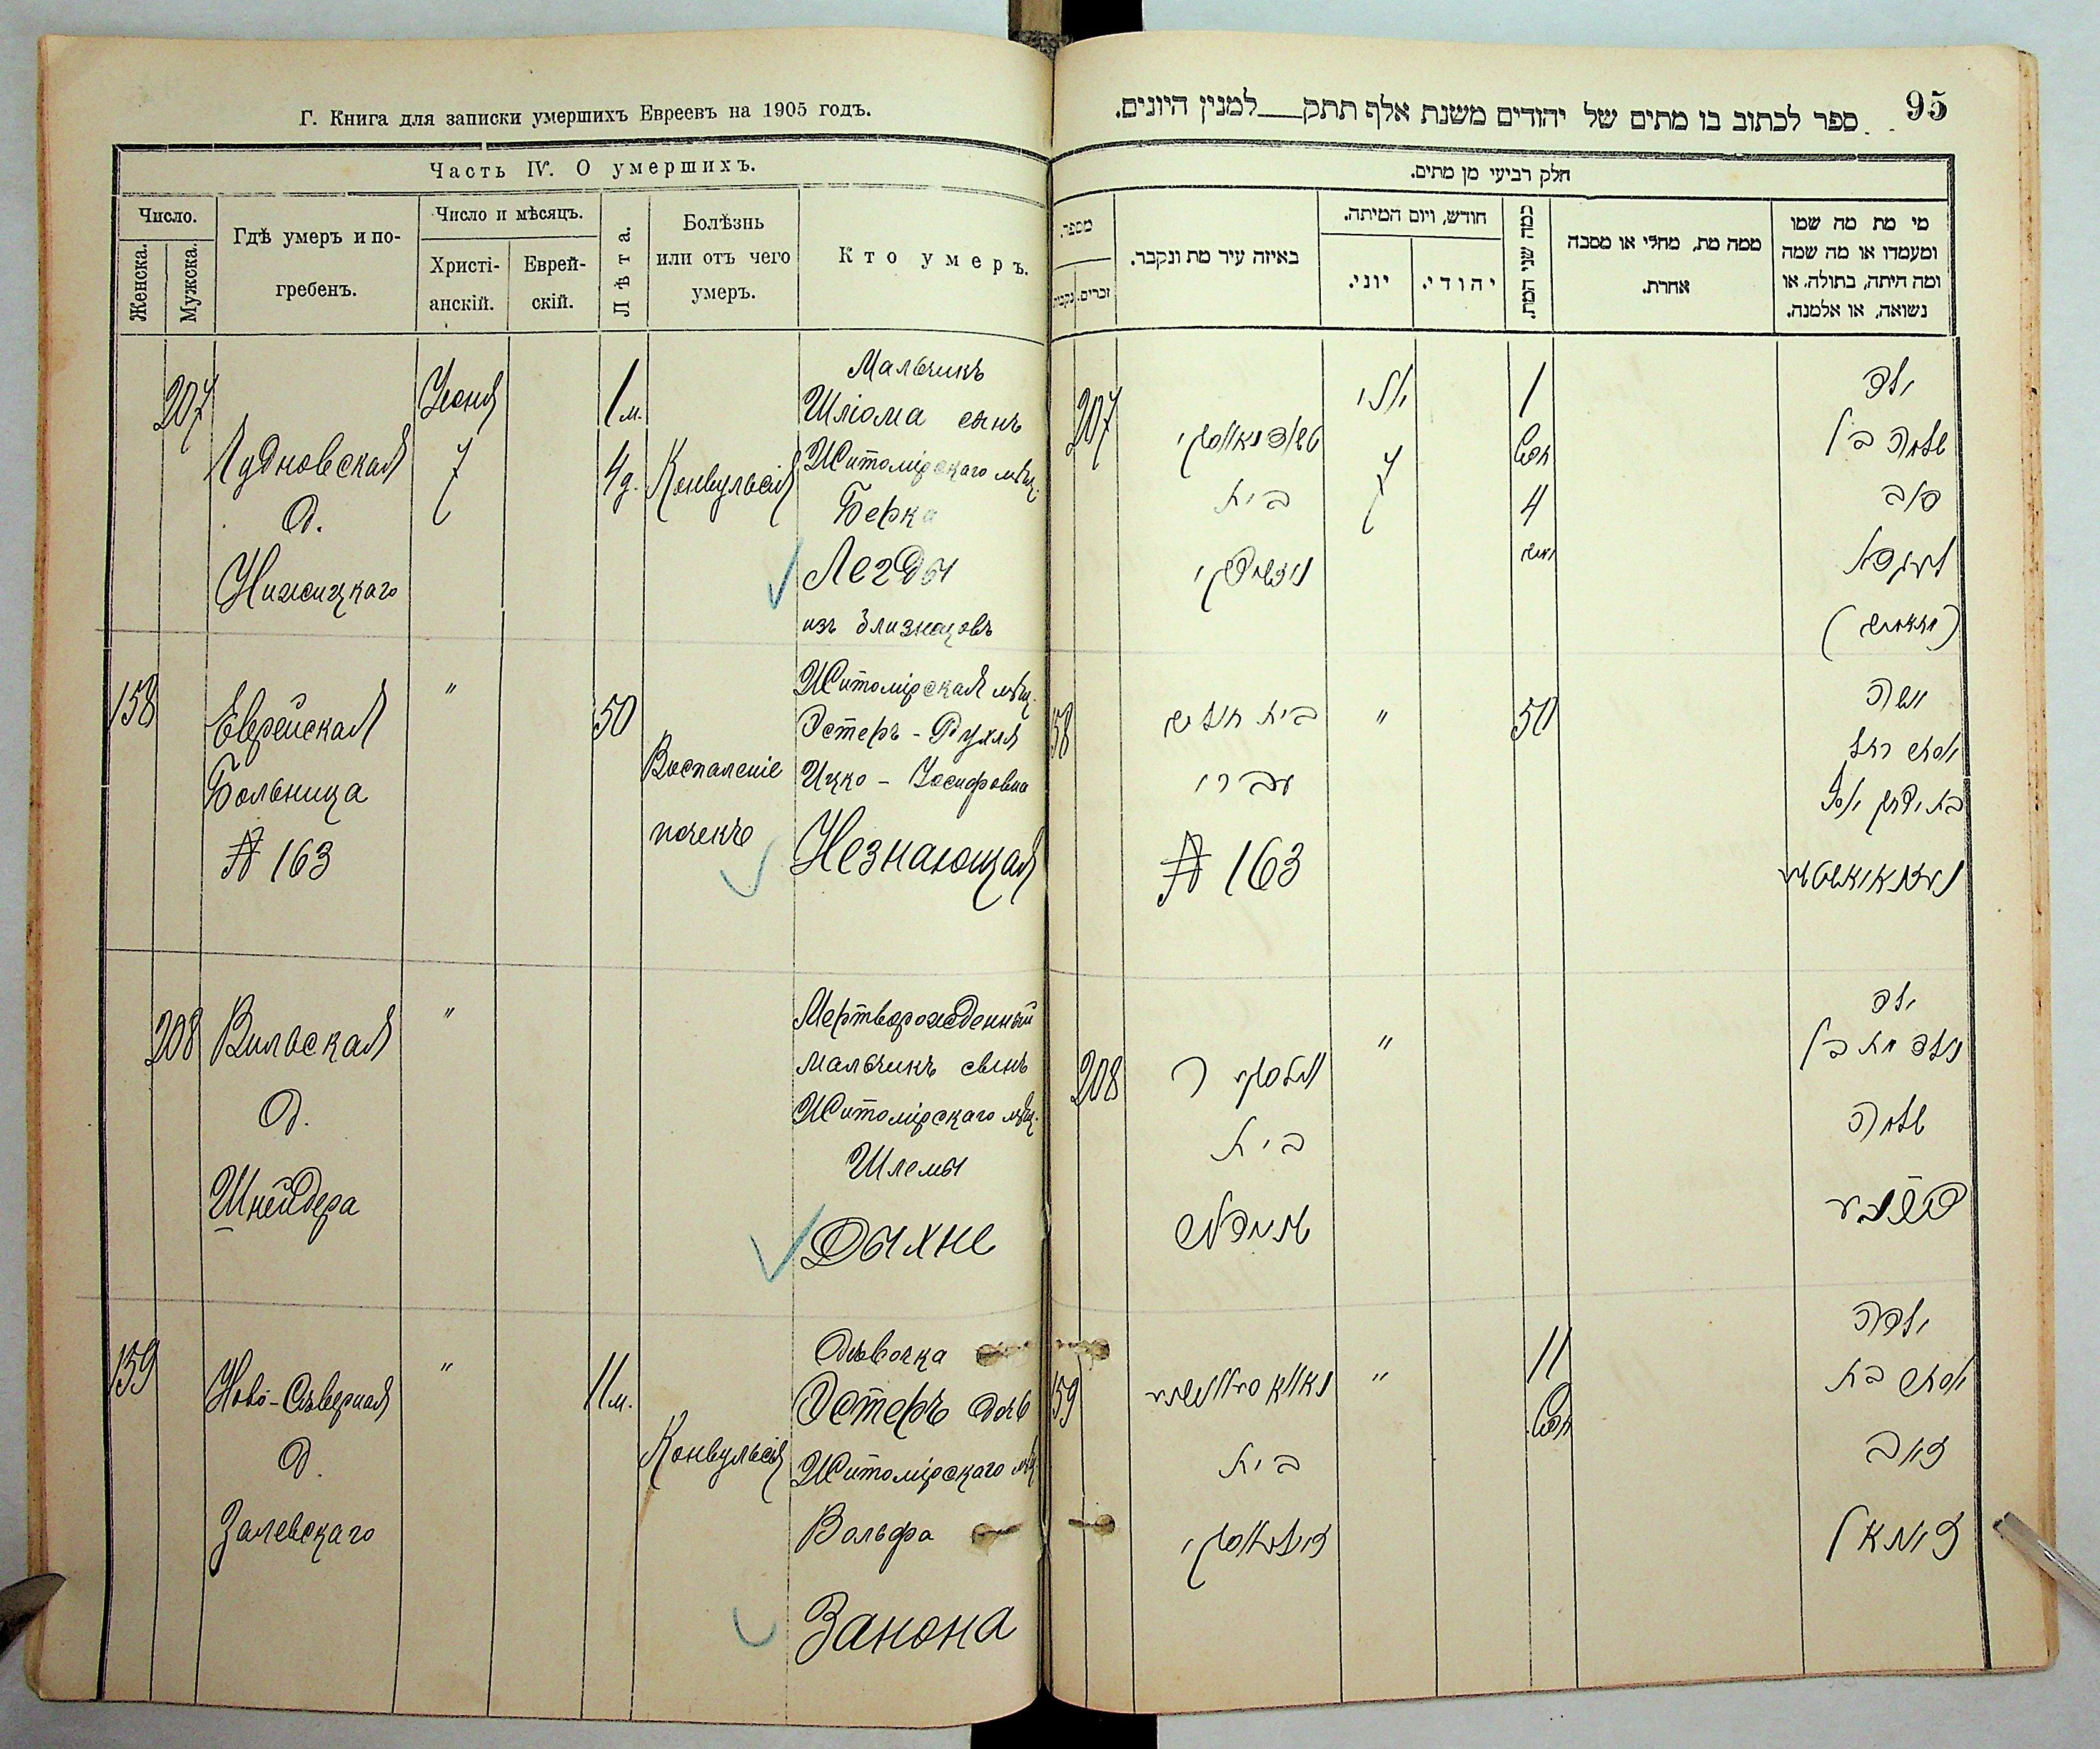 Г. Книга для записки умершихъ Евреевъ на 1905 годъ.
Часть IV. О умершихъ.
Число.
Женска.
Мужска.
Гдѣ умеръ и по-
гребенъ.
Число и мѣсяцъ.
Христі-
анскій.
Еврей-
скій.
Лѣта.
Болѣзнь
или отъ чего
умеръ.
Кто умеръ.
207
Чудновская
д.
Нижицкаго
Іюня
7
1 м.
4 д.
Конвульсія
Мальчикъ
Шліома сынъ
Житомірскаго мѣщ.
Берка
Легды
изъ близнацовъ
158
Еврейская
Больница
№ 163
"
50
Воспаленіе
почекъ
Житомірская мѣщ.
Эстеръ - Рухля
Ицко - Іосифовна
Незнающая
208
Вильская
д.
Шнейдера
"
Мертворожденный
мальчикъ сынъ
Житомірскаго мѣщ.
Шлемы
Дыхне
159
Ново-Сѣверная
д.
Залевскаго
"
11 м.
Конвульсія
Дѣвочка
Эстеръ дочь
Житомірскаго мѣщ.
Вольфа
Занона
95
ספר לכתוב בו מתים של יהודים משנת אלף תתק__למנין היונים.
חלק רביעי מן מתים.
מספר.
זכרים.
נקבות
באיזה עיר מת ונקבר.
חודש, ויום המיתה.
יוני.
יהודי.
כמה שני המת.
ממה מת, מחלי או מסבה
אחרת.
מי מת מה שמו
ומעמדו או מה שמה
ומה היתה, בתולה, או
נשואה, או אלמנה.
207
בית
יולי
7
1
חדש
4
ילד
שלמה בן
בער
58
בית חולים
עברי
№ 163
"
50
אשה
אסתר רחל
בת יצחק יוסף
208
בית
שניידער
"
ילד
נולד מת בן
שלמה
159
בית
"
11
חדש
ילדה
אסתר בת
זאב